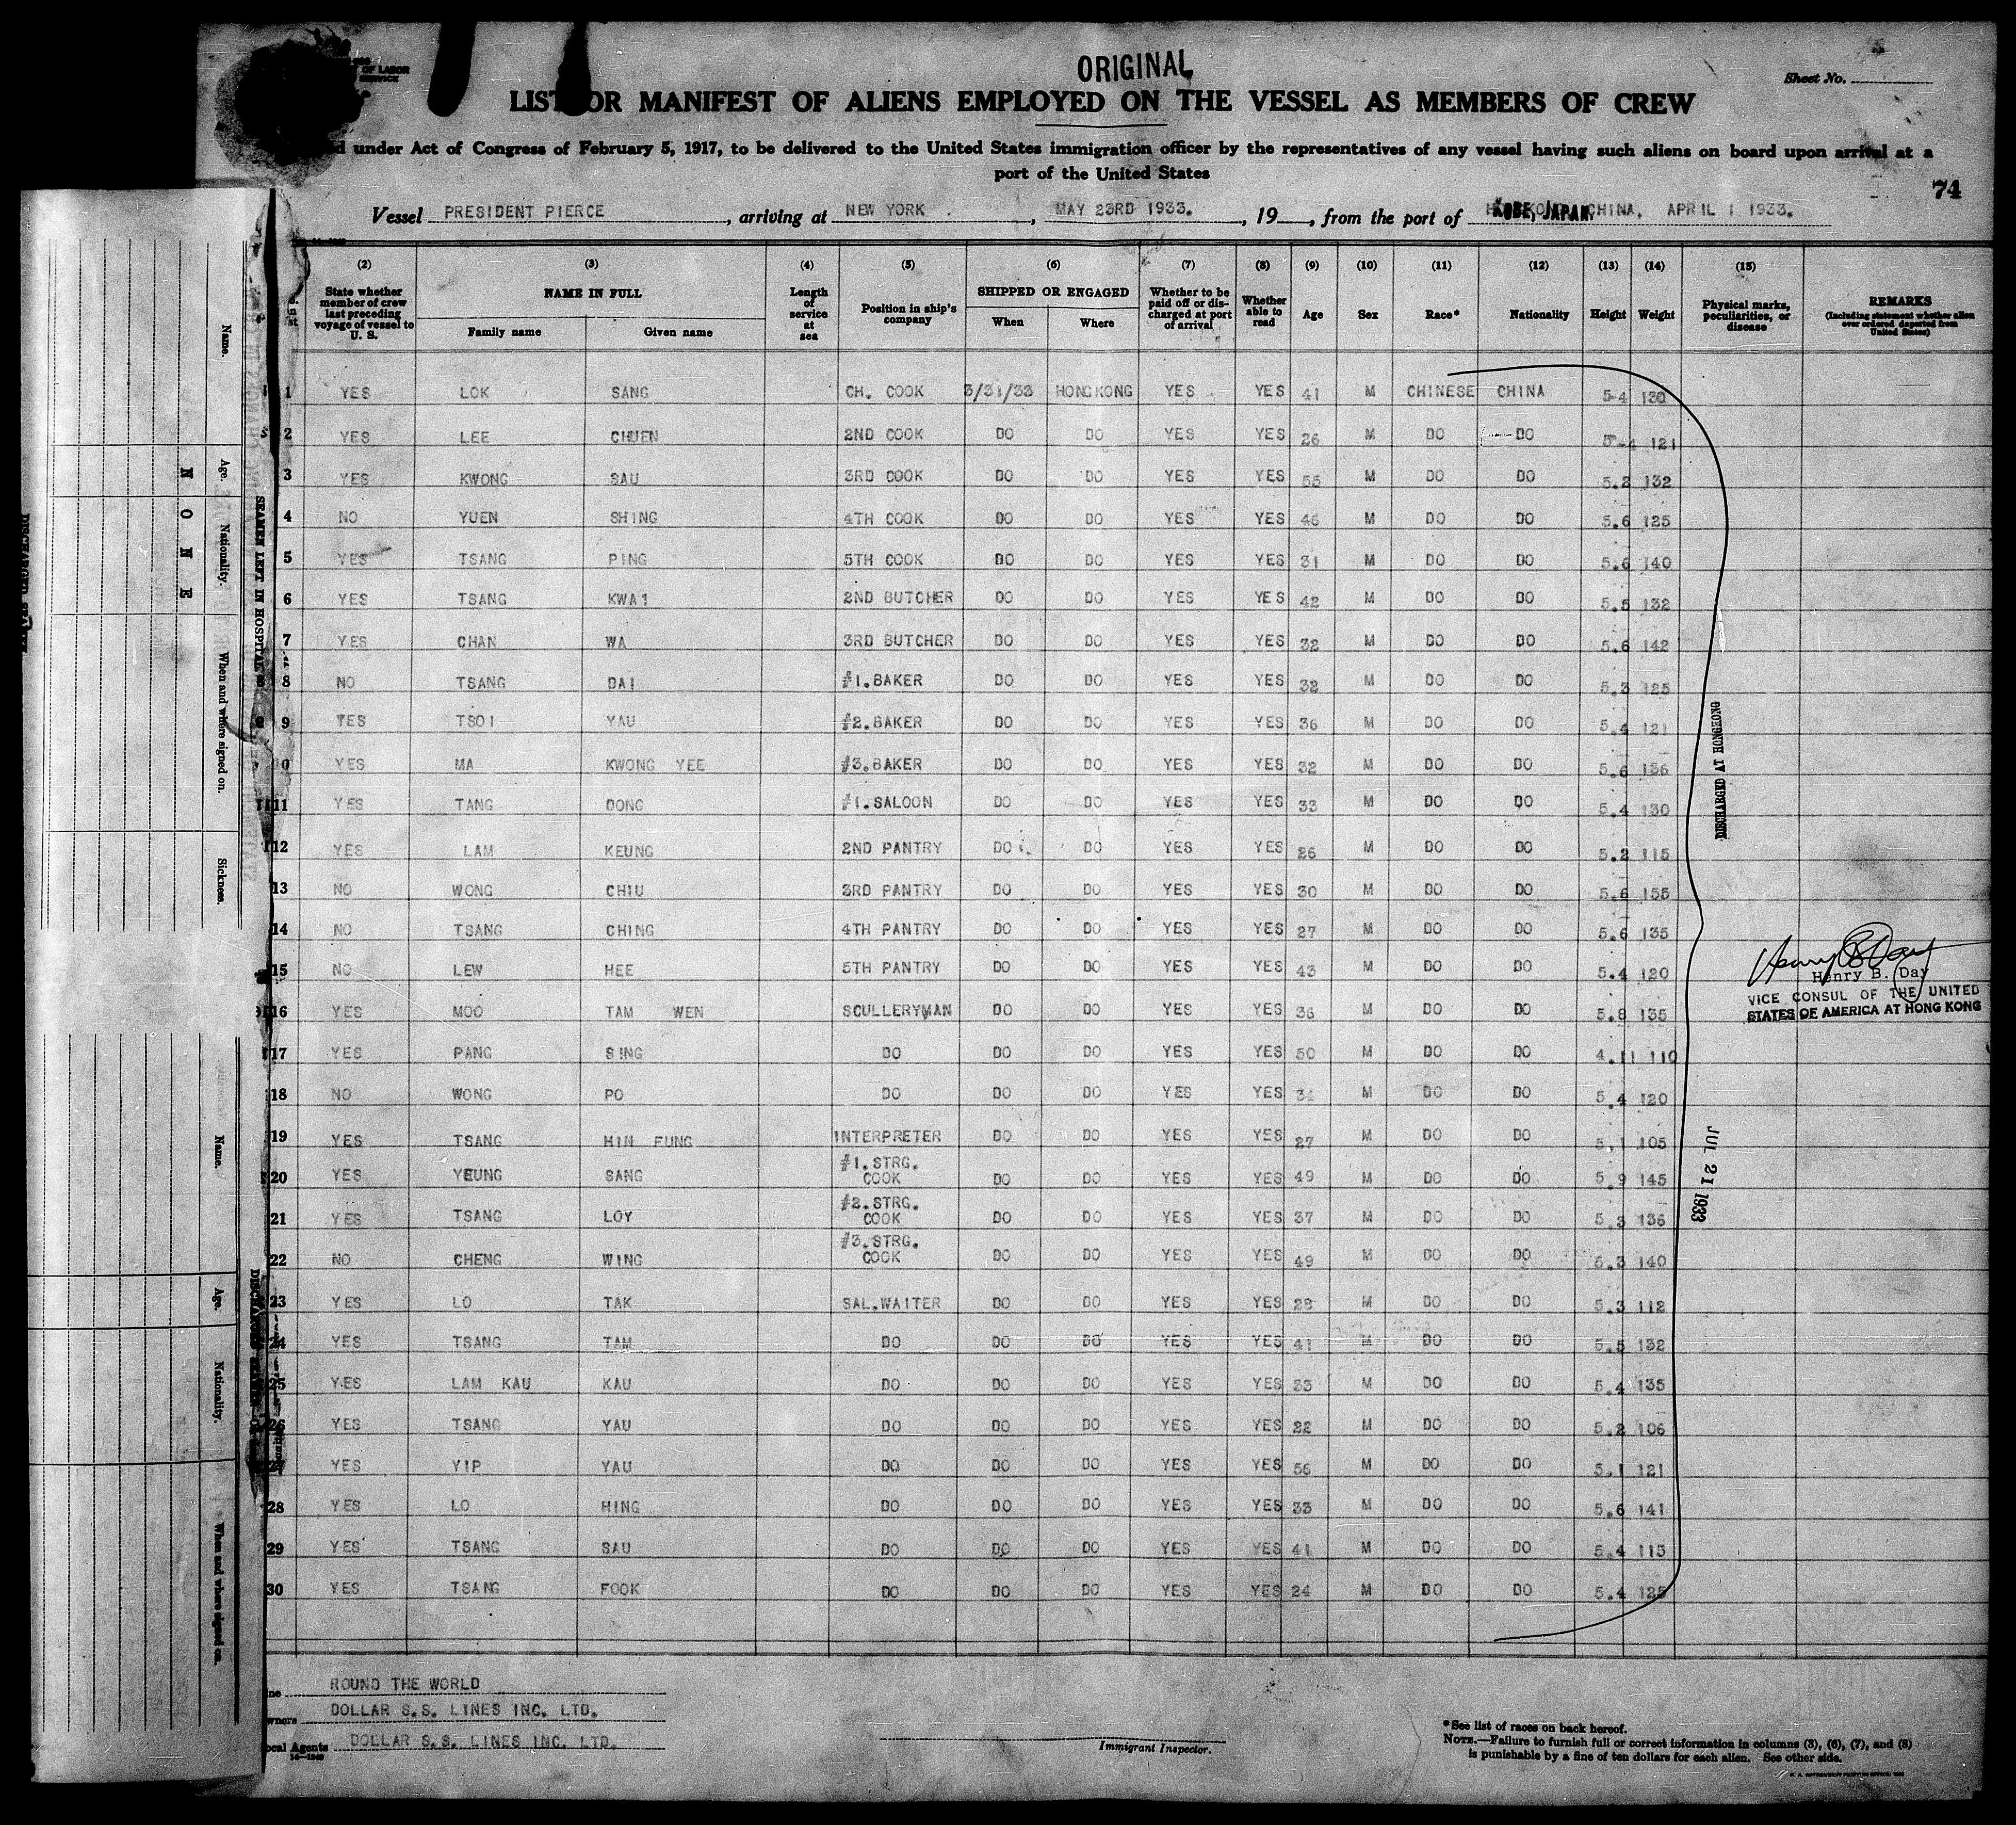 OF LABOR
SERVICE
ORIGINAL
Sheet No.
LIST OR MANIFEST OF ALIENS EMPLOYED ON THE VESSEL AS MEMBERS OF CREW
under Act of Congress of February 5, 1917, to be delivered to the United States immigration officer by the representatives of any vessel having such aliens on board upon arrival at a
port of the United States
74
Vessel PRESIDENT PIERCE, arriving at NEW YORK, MAY 23RD 1933., 19, from the port of KOBE, JAPAN. CHINA, APRIL 1 1933.
(2) (3) (4) (5) (6) (7) (8) (9) (10) (11) (12) (13) (14) (15)
State whether member of crew last preceding voyage of vessel to U. S. NAME IN FULL Family name Given name Length of service at sea Position in ship's company SHIPPED OR ENGAGED When Where Whether to be paid off or discharged at port of arrival Whether able to read Age Sex Race* Nationality Height Weight Physical marks, peculiarities, or disease REMARKS (Including statement whether alien ever ordered deported from United States)
1 YES LOK SANG CH. COOK 3/31/33 HONGKONG YES YES 41 M CHINESE CHINA 5-4 130
2 YES LEE CHUEN 2ND COOK DO DO YES YES 26 M DO DO 5-4 121
3 YES KWONG SAU 3RD COOK DO DO YES YES 55 M DO DO 5.2 132
4 NO YUEN SHING 4TH COOK DO DO YES YES 46 M DO DO 5.6 125
5 YES TSANG PING 5TH COOK DO DO YES YES 31 M DO DO 5.6 140
6 YES TSANG KWAI 2ND BUTCHER DO DO YES YES 42 M DO DO 5.5 132
7 YES CHAN WA 3RD BUTCHER DO DO YES YES 32 M DO DO 5.6 142
8 NO TSANG DAI #1.BAKER DO DO YES YES 32 M DO DO 5.3 125
9 YES TSOI YAU #2.BAKER DO DO YES YES 36 M DO DO 5.4 121
10 YES MA KWONG YEE #3.BAKER DO DO YES YES 32 M DO DO 5.6 136
11 YES TANG DONG #1.SALOON DO DO YES YES 33 M DO DO 5.4 130
12 YES LAM KEUNG 2ND PANTRY DO DO YES YES 26 M DO DO 5.2 115
13 NO WONG CHIU 3RD PANTRY DO DO YES YES 30 M DO DO 5.6 155
14 NO TSANG CHING 4TH PANTRY DO DO YES YES 27 M DO DO 5.6 135
15 NO LEW HEE 5TH PANTRY DO DO YES YES 43 M DO DO 5.4 120
16 YES MOO TAM WEN SCULLERYMAN DO DO YES YES 36 M DO DO 5.8 135
17 YES PANG SING DO DO DO YES YES 50 M DO DO 4.11 110
18 NO WONG PO DO DO DO YES YES 34 M DO DO 5.4 120
19 YES TSANG HIN FUNG INTERPRETER DO DO YES YES 27 M DO DO 5.1 105
20 YES YEUNG SANG #1.STRG. COOK DO DO YES YES 49 M DO DO 5.9 145
21 YES TSANG LOY #2.STRG. COOK DO DO YES YES 37 M DO DO 5.3 136
22 NO CHENG WING #3.STRG. COOK DO DO YES YES 49 M DO DO 5.3 140
23 YES LO TAK SAL.WAITER DO DO YES YES 28 M DO DO 5.3 112
24 YES TSANG TAM DO DO DO YES YES 41 M DO DO 5.5 132
25 YES LAM KAU KAU DO DO DO YES YES 33 M DO DO 5.4 135
26 YES TSANG YAU DO DO DO YES YES 22 M DO DO 5.2 106
27 YES YIP YAU DO DO DO YES YES 56 M DO DO 5.1 121
28 YES LO HING DO DO DO YES YES 33 M DO DO 5.6 141
29 YES TSANG SAU DO DO DO YES YES 41 M DO DO 5.4 113
30 YES TSANG FOOK DO DO DO YES YES 24 M DO DO 5.4 125
DISCHARGED AT HONGKONG
JUL 21 1933
Henry B. Day
Henry B. Day
VICE CONSUL OF THE UNITED
STATES OF AMERICA AT HONG KONG
ROUND THE WORLD
DOLLAR S.S. LINES INC. LTD.
Agents DOLLAR S.S. LINES INC. LTD.
Immigrant Inspector.
*See list of races on back hereof.
NOTE.—Failure to furnish full or correct information in columns (3), (6), (7), and (8)
is punishable by a fine of ten dollars for each alien. See other side.
SEAMEN LEFT IN HOSPITAL
Name. Age. Nationality. When and where signed on. Sickness.
NONE
Name. Age. Nationality. When and where signed on.